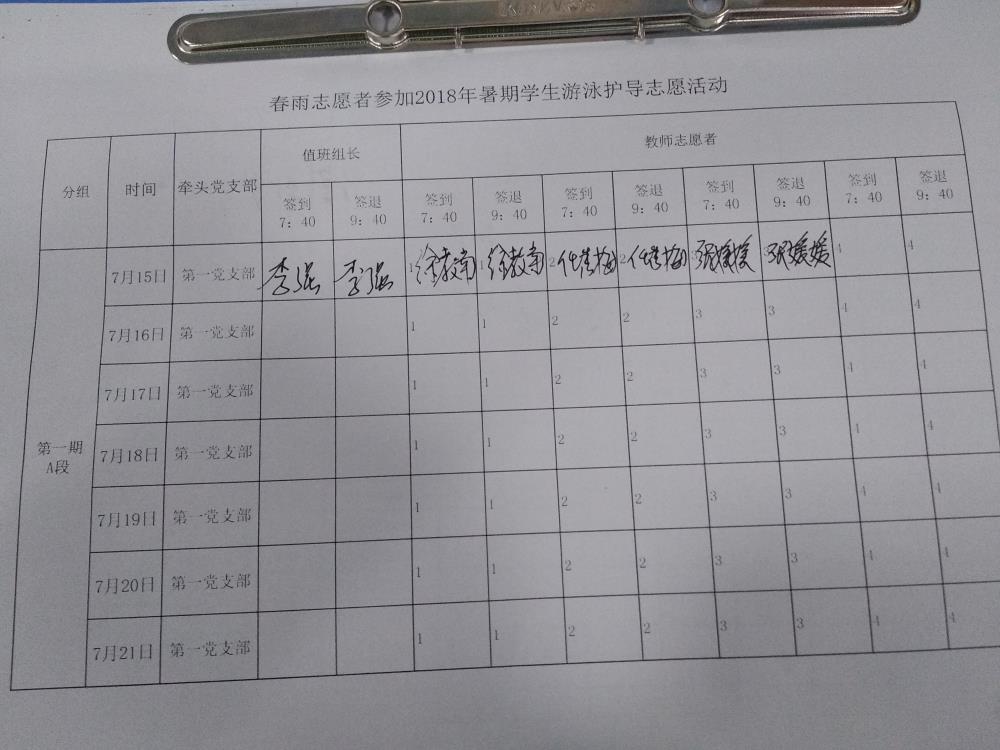 春雨志愿者参加2018年暑期学生游泳护导志愿活动
分组 时间 牵头党支部 值班组长 教师志愿者
签到 7：40 签退 9：40 签到 7：40 签退 9：40 签到 7：40 签退 9：40 签到 7：40 签退 9：40 签到 7：40 签退 9：40
第一期 A段
7月15日 第一党支部 李强 李强 张媛媛 张媛媛 4 4
7月16日 第一党支部 1 1 2 2 3 3 4 4
7月17日 第一党支部 1 1 2 2 3 3 4 4
7月18日 第一党支部 1 1 2 2 3 3 4 4
7月19日 第一党支部 1 1 2 2 3 3 4 4
7月20日 第一党支部 1 1 2 2 3 3 4 4
7月21日 第一党支部 1 1 2 2 3 3 4 4